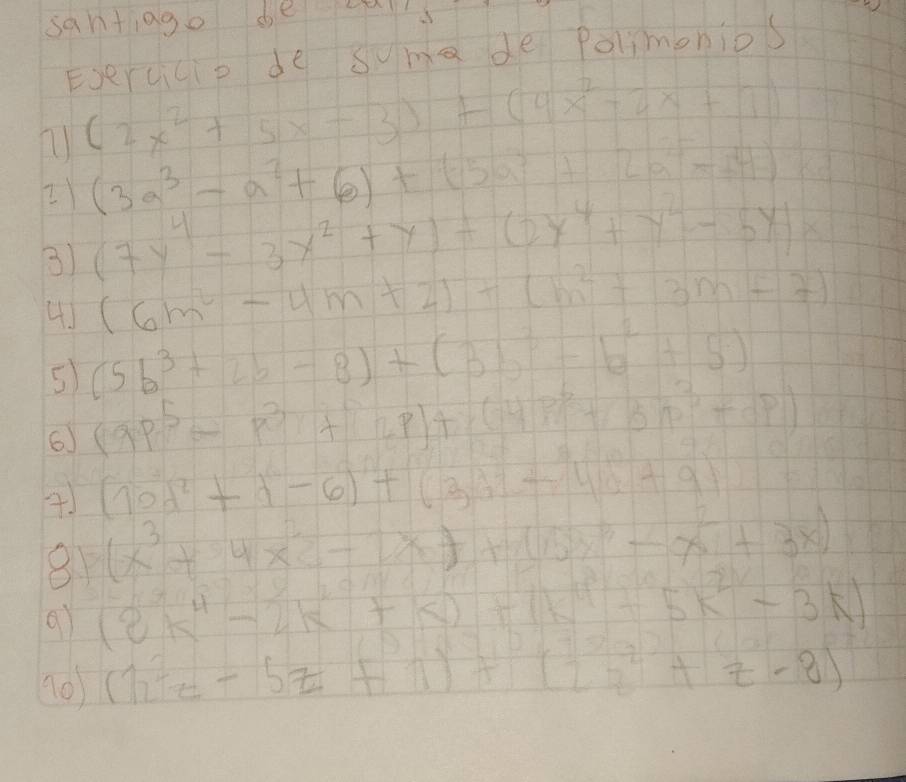 santiago de
Esercicio de suma de Polimonios
1) (2x² + 5x - 3) + (4x² - 2x + 1)
2) (3a³ - a² + 6) + (5a³ + 2a² - 4)
3) (7y⁴ - 3y² + y) + (2y⁴ + y² - 5y)
4) (6m² - 4m + 2) + (m² + 3m - 7)
5) (5b³ + 2b - 8) + (3b³ - b² + 5)
6) (9p⁵ - p³ + 2p) + (4p⁵ + 3p³ + p)
7) (10d² + d - 6) + (3d² - 4d + 9)
8) (x³ + 4x² - 2x) + (5x³ - x² + 3x)
9) (8k⁴ - 2k² + k) + (k⁴ + 5k² - 3k)
10) - 5z + 1) + (2z² + z - 8)